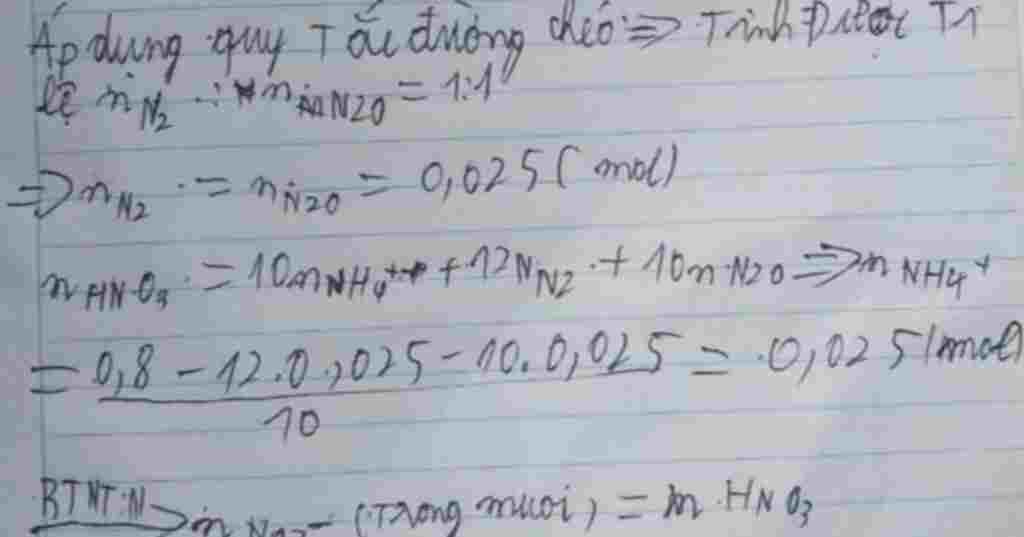 Áp dụng quy Tắc đường chéo => Tính Được Tỉ
lệ n N2 : n N2O = 1:1
=> n N2 = n N2O = 0,025 ( mol)
n HNO3 = 10n NH4+ + 12N N2 + 10n N2O => n NH4+
= (0,8 - 12.0,025 - 10.0,025)/10 = 0,025 (mol)
BTNT:N -> n NO3- (Trong muối) = n HNO3